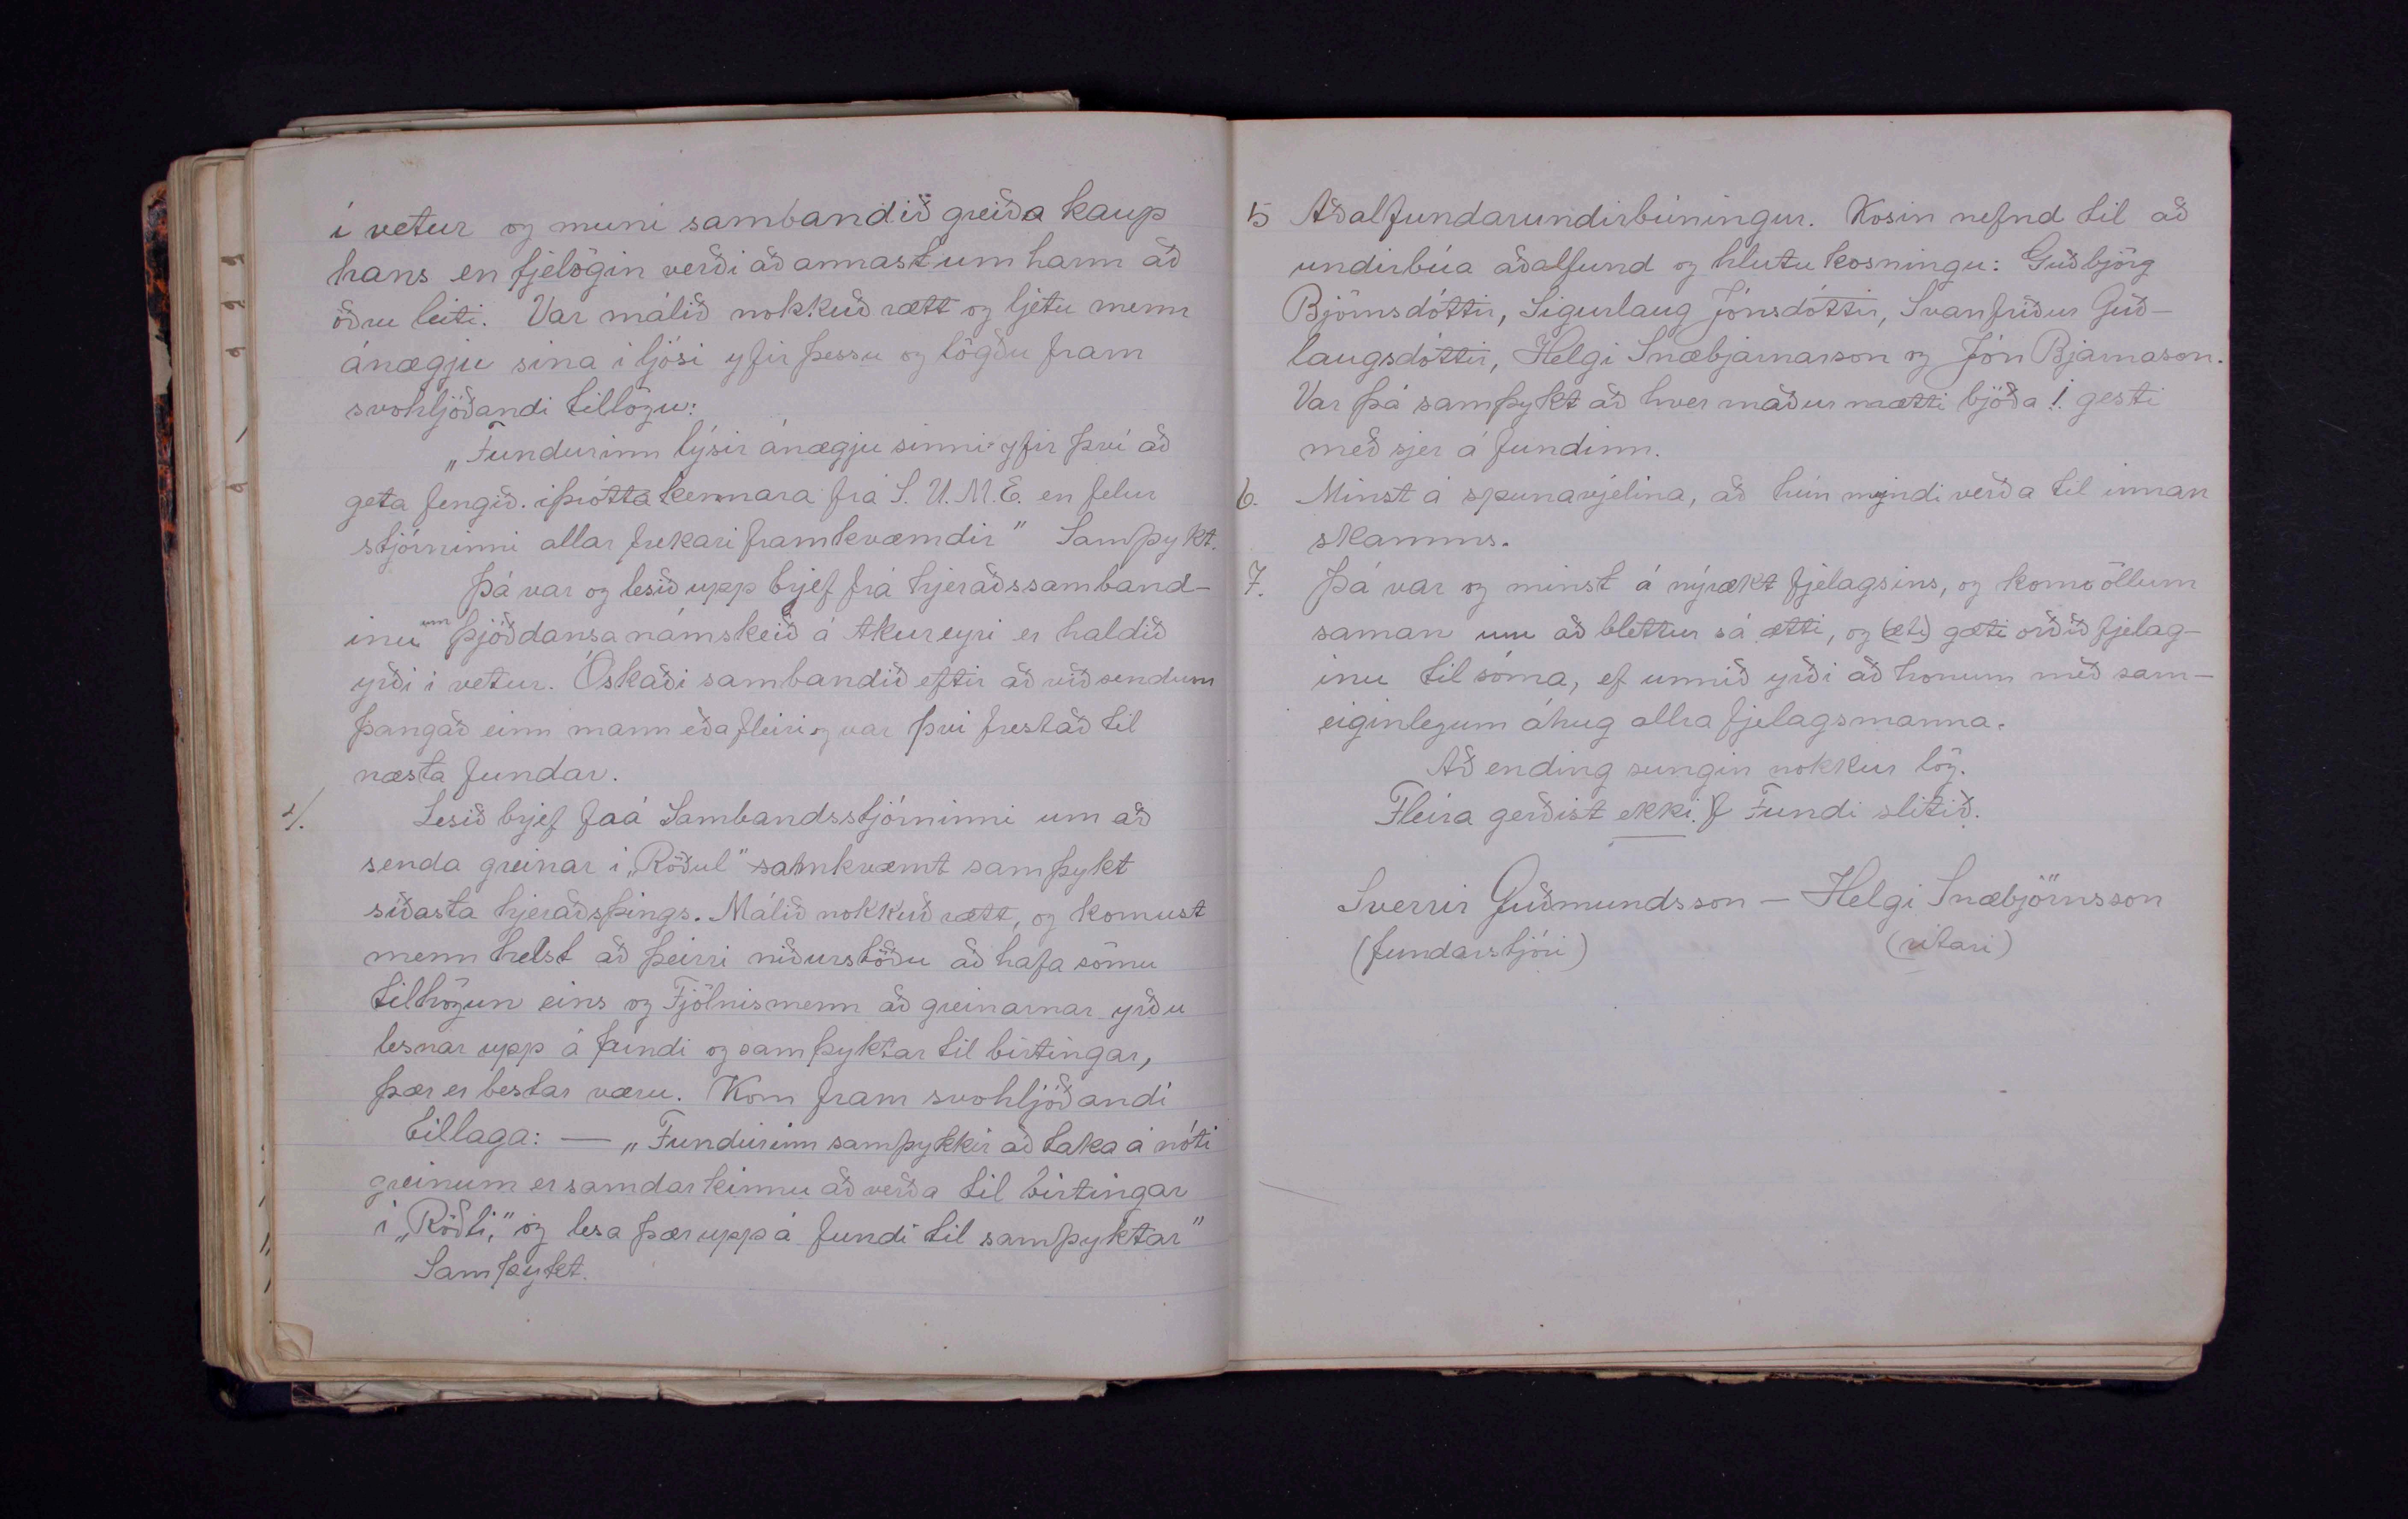 í vetur og muni sambandið greiða kaup
hans en fjelögin verði að annast um hann að
öðru leiti. Var málið nokkuð rætt og ljetu menn
ánægju sina i ljósi yfir þessu og lögðu fram
svohljóðandi tillögu:
„Fundurinn lýsir ánægju sinni yfir því að
geta fengið. iþróttakennara frá S. U. M. E. en felur
stjórninni allar frekari framkvæmdir" Samþykt.
Þá var og lesið upp brjef frá hjeraðssamband-
inu um þjóðdansanámskeið á Akureyri er haldið
yrði i vetur. Óskaði sambandið eftir að við sendum
þangað einn mann eða fleiri og var þvi frestað til
næsta fundar.
4. Lesið brjef faá Sambandsstjórninni um að
senda greinar i „Röðul" samkvæmt samþykt
siðasta hjeraðsþings. Málið nokkuð rætt, og komust
menn helst að þeirri niðurstöðu að hafa sömu
tilhögun eins og Fjölnismenn að greinarnar yrðu
lesnar upp á fundi og samþyktar til birtingar,
þær er bestar væru. Kom fram svohljóðandi
tillaga: — „Fundurinn samþykkir að taka á móti
greinum er samdar kinnu að verða til birtingar
i „Röðli," og lesa þær upp á fundi til samþyktar"
Samþykt.
5 Aðalfundarundirbúningur. Kosin nefnd til að
undirbúa aðalfund og hlutu kosningu: Guðbjörg
Björnsdóttir, Sigurlaug Jónsdóttir, Svanfriður Guð-
laugsdóttir, Helgi Snæbjarnarson og Jón Bjarnason.
Var þá samþykt að hver maður mætti bjóða 1. gesti
með sjer á fundinn.
6. Minst á spunavjelina, að hún myndi verða til innan
skamms.
7. Þá var og minst á nýrækt fjelagsins, og kom öllum
saman um að blettur sá ætti, og (æti) gæti orðið fjelag-
inu til sóma, ef unnið yrði að honum með sam-
eiginlegum áhug allra fjelagsmanna.
Að ending sungin nokkur lög.
Fleira gerðist ekki. f Fundi slitið.
Sverrir Guðmundsson — Helgi Snæbjörnsson
(fundarstjóri) (ritari)